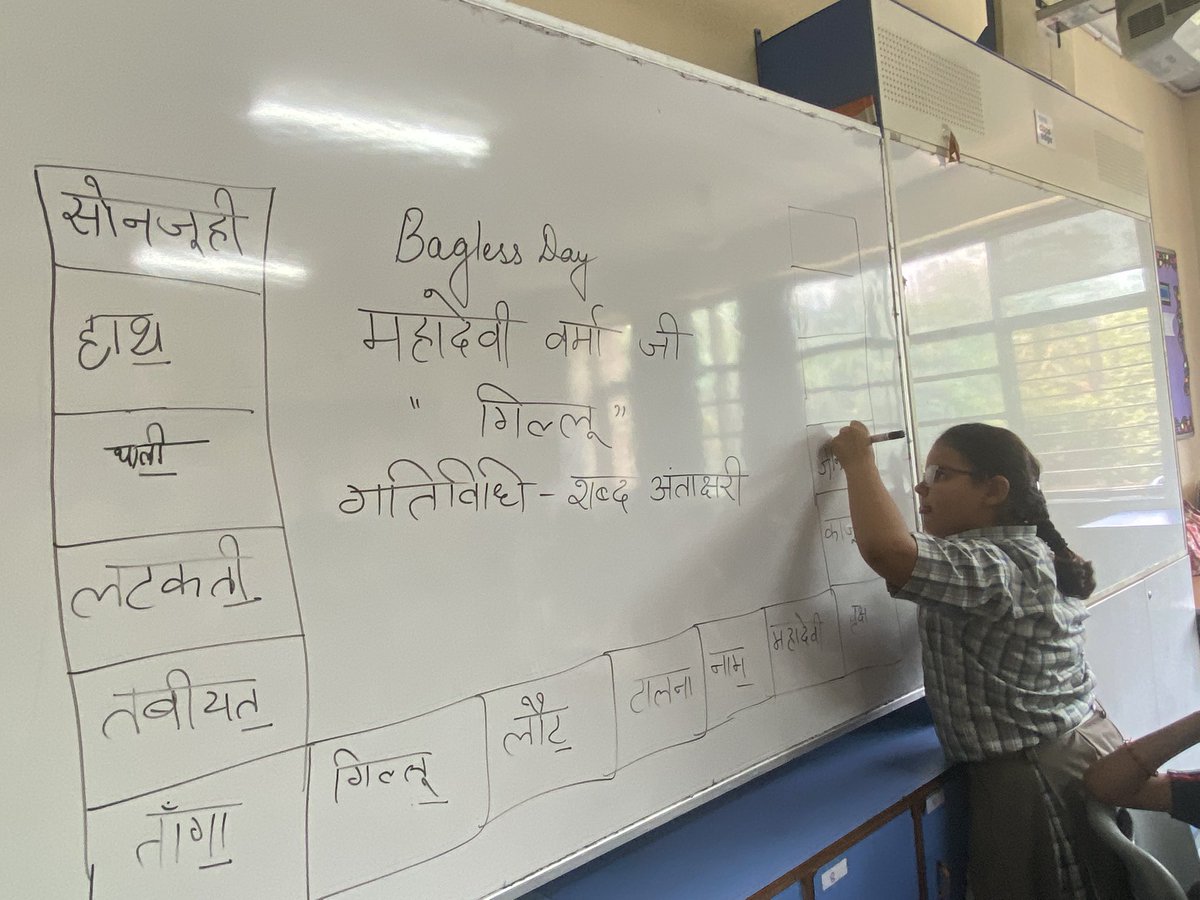 सोनजूही
हाथ
थाली
लटकती
तबीयत
ताँगा
Bagless Day
महादेवी वर्मा जी
" गिल्लू "
गतिविधि - शब्द अंताक्षरी
गिल्लू
लौट
टालना
नाम
महादेवी
काजू